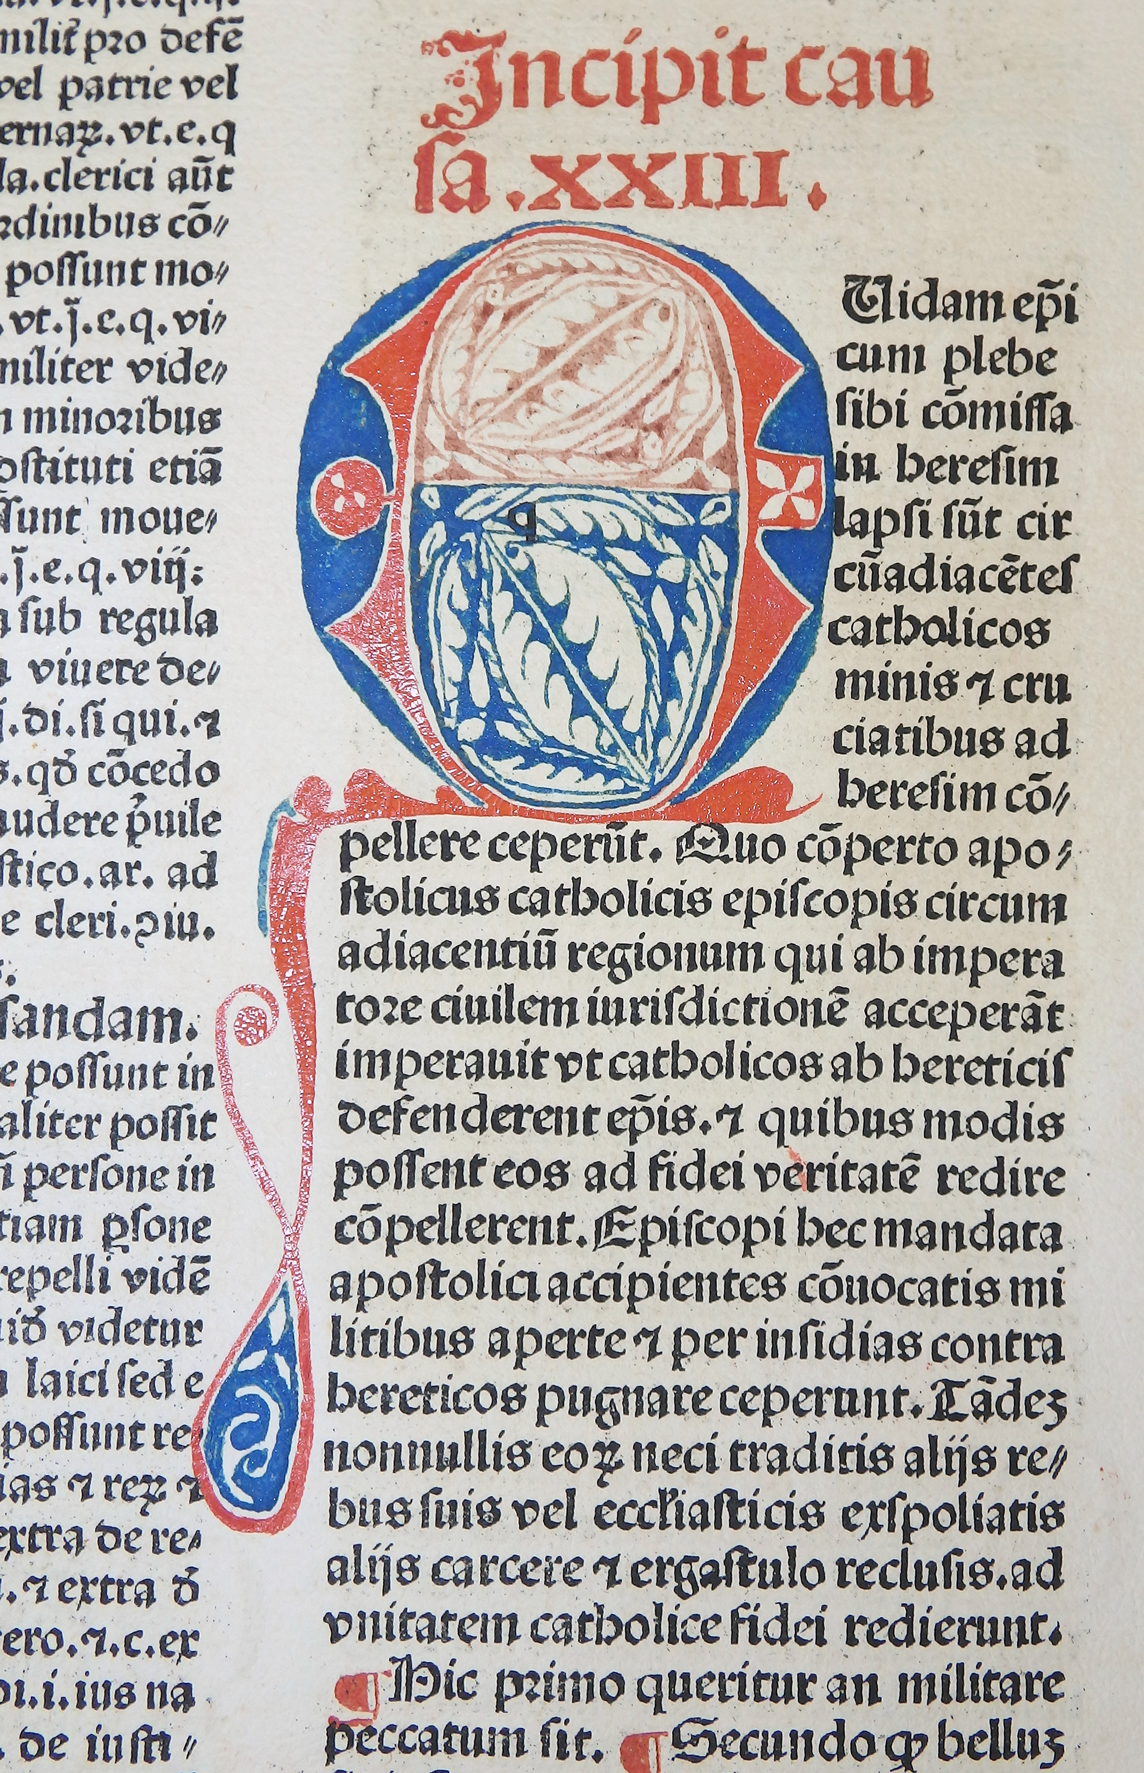 milit̃ pro defẽ
vel patrie vel
ernaꝝ. vt. e. q
la. clerici aũt
rdinibus cõ⸗
possunt mo⸗
. vt. j̃. e. q. vi⸗
militer vide⸗
n minoribus
ostituti etiã
ſſunt moue⸗
. j̃. e. q. viij:
a sub regula
viuere de⸗
j̃. di. si qui. ⁊
s. qđ cõcedo
audere p̃uile
stico. ar. ad
e cleri. ꝛiu.
ſandam.
e poſſunt in
aliter poſſit
ñ perſone in
tiam ꝑſone
repelli vidẽ
uiđ videtur
laici ſed e
poſſunt re⸗
ias ⁊ reꝝ ⁊
extra de re⸗
. ⁊ extra đ
ero. ⁊. c. ex
. i. ius na
. de iuſti⸗
Incipit cau
ſa. XXIII.
q
Uidam ep̃i
cum plebe
ſibi cõmiſſa
in hereſim
lapſi ſũt cir
cũadiacẽteſ
catholicos
minis ⁊ cru
ciatibus ad
hereſim cõ⸗
pellere ceperũt. Quo cõperto apo⸗
ſtolicus catholicis epiſcopis circum
adiacentiũ regionum qui ab impera
tore ciuilem iuriſdictionẽ acceperãt
imperauit vt catholicos ab hereticiſ
defenderent ep̃is. ⁊ quibus modis
poſſent eos ad fidei veritatẽ redire
cõpellerent. Epiſcopi hec mandata
apoſtolici accipientes cõuocatis mi
litibus aperte ⁊ per inſidias contra
hereticos pugnare ceperunt. Tãdeꝫ
nonnullis eoꝝ neci traditis alijs re⸗
bus ſuis vel eccl̃iaſticis exſpoliatis
alijs carcere ⁊ ergaſtulo recluſis. ad
vnitatem catholice fidei redierunt.
¶ Hic primo queritur an militare
peccatum ſit. ¶ Secundo ꝙ belluꝫ